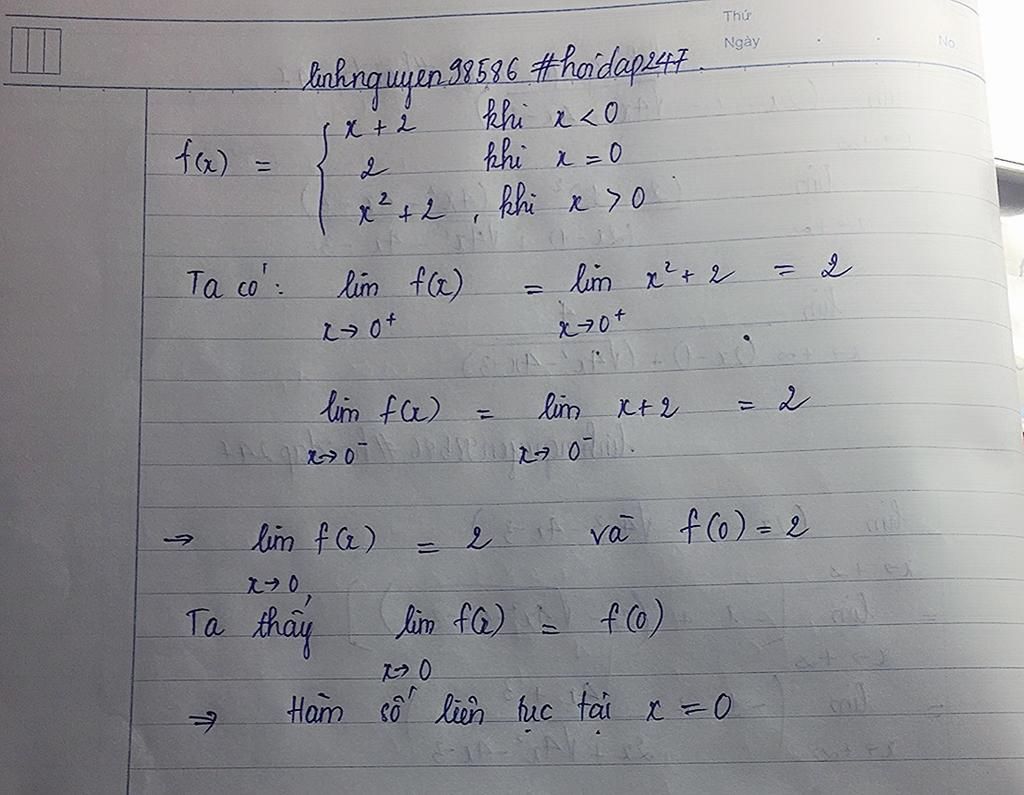 Thứ
Ngày . . No
linhnguyen98586 #hoidap247.
x + 2 khi x < 0
f(x) = { 2 khi x = 0
x² + 2 , khi x > 0
Ta có : lim f(x) = lim x² + 2 = 2
x→0⁺ x→0⁺
lim f(x) = lim x+2 = 2
x→0⁻ x→0⁻
→ lim f(x) = 2 và f(0) = 2
x→0
Ta thấy lim f(x) = f(0)
x→0
⇒ Hàm số liên tục tại x = 0